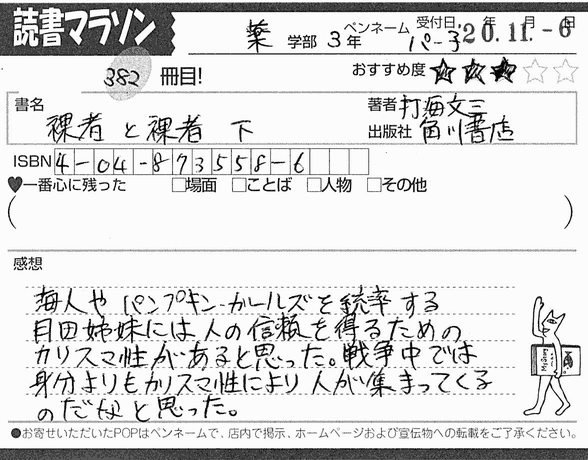 読書マラソン
薬 学部 3年 ペンネーム パー子 受付日 20年11月-6日
382 冊目!
おすすめ度 ★★★☆☆
書名 裸者と裸者 下
著者 打海文三
出版社 角川書店
ISBN 4-04-873558-6
♥一番心に残った □場面 □ことば □人物 □その他
( )
感想
海人や パンプキン・ガールズを統率する
月田姉妹には人の信頼を得るための
カリスマ性があると思った。戦争中では
身分よりもカリスマ性により人が集まってくる
のだなと思った。
●お寄せいただいたPOPはペンネームで、店内で掲示、ホームページおよび宣伝物への転載をご了承ください。